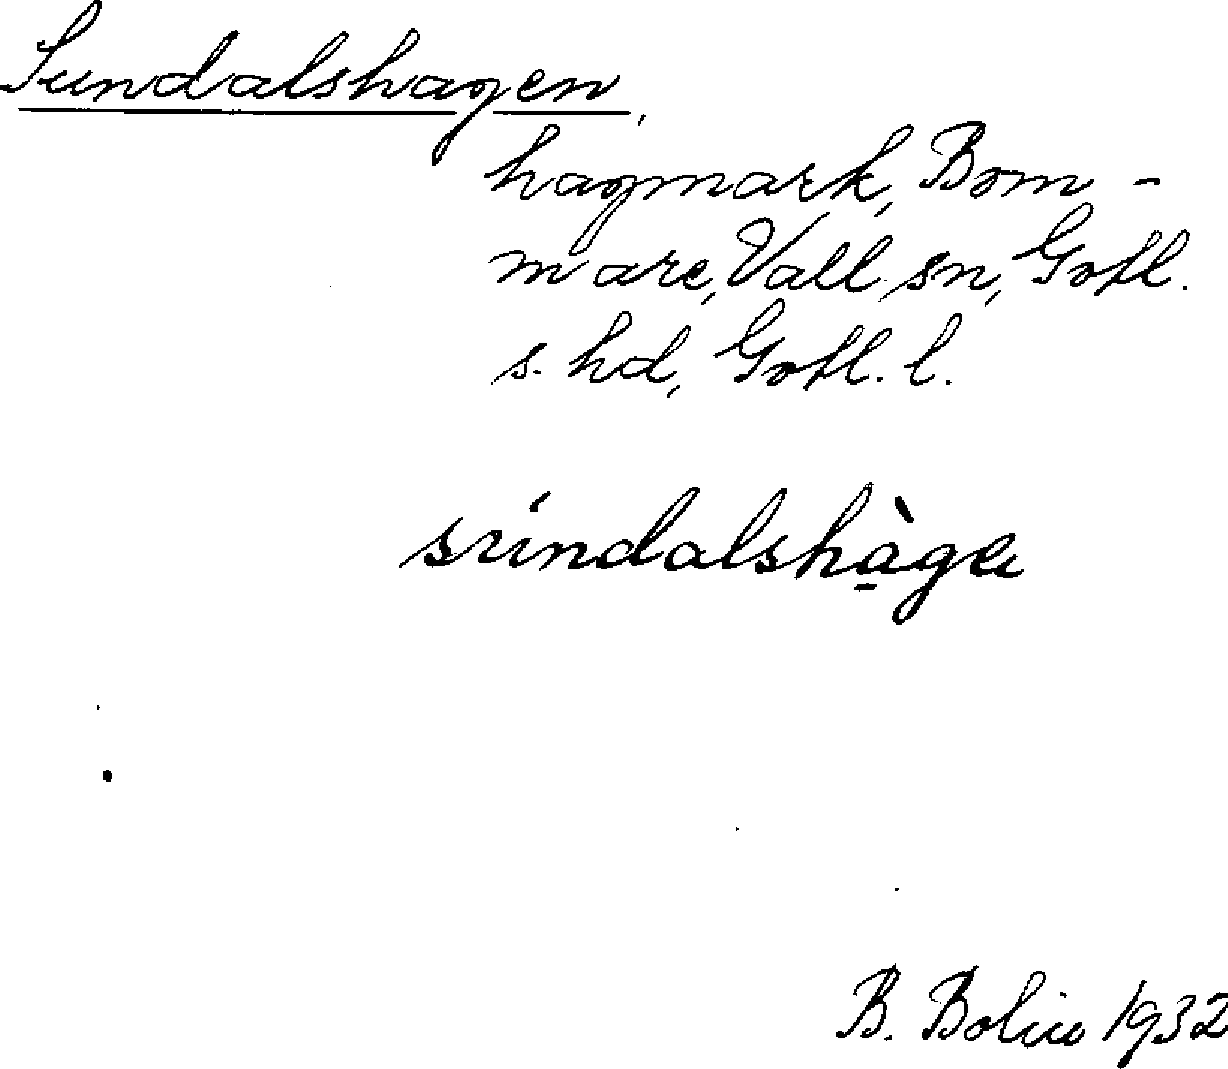 Sundalshagen,
hagmark, Bom-
mare, Vall sn, Gotl.
s. hd, Gotl. l.
súndalshàga
B. Bolin 1932